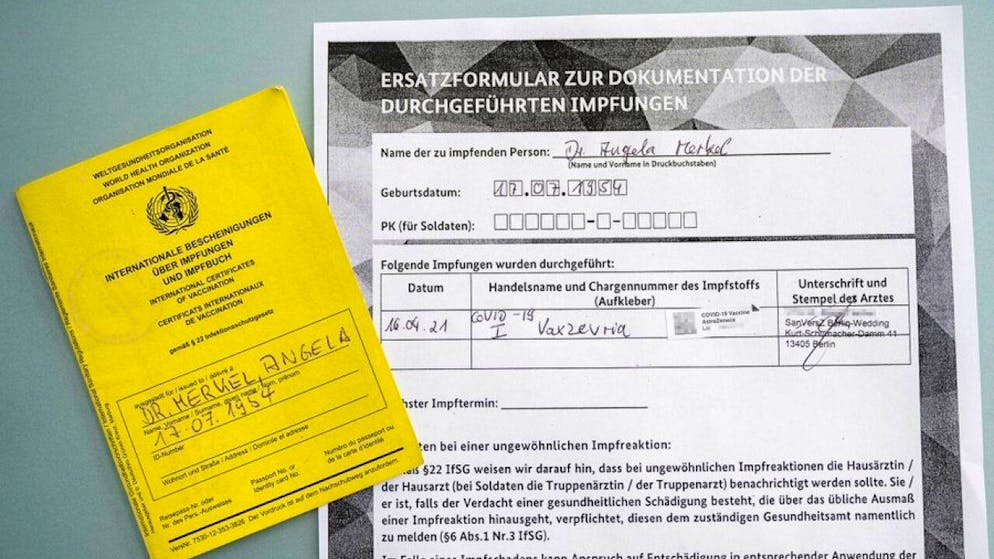 WELTGESUNDHEITSORGANISATION
WORLD HEALTH ORGANIZATION
ORGANISATION MONDIALE DE LA SANTÉ
INTERNATIONALE BESCHEINIGUNGEN
ÜBER IMPFUNGEN
UND IMPFBUCH
INTERNATIONAL CERTIFICATES
OF VACCINATION
CERTIFICATS INTERNATIONAUX
DE VACCINATION
gemäß § 22 Infektionsschutzgesetz
ausgestellt für / issued to / délivré à
DR. MERKEL, ANGELA
Name, Vorname / Surname, given name / Nom, prénom
17.07.1954
ID-Number
Wohnort und Straße / Address / Domicile et adresse
Reisepass-Nr. oder
Nr. des Pers.-Ausweises
Passport No. or
Identity card No.
Numéro du passeport ou
de la carte d'identité
VersNr. 7530-12-353-3826 Der Vordruck ist auf dem Nachschubweg anzufordern.
ERSATZFORMULAR ZUR DOKUMENTATION DER
DURCHGEFÜHRTEN IMPFUNGEN
Name der zu impfenden Person: Dr. Angela Merkel
(Name und Vorname in Druckbuchstaben)
Geburtsdatum: 17.07.1954
PK (für Soldaten):
Folgende Impfungen wurden durchgeführt:
Datum
Handelsname und Chargennummer des Impfstoffs
(Aufkleber)
Unterschrift und
Stempel des Arztes
16.04.21
COVID-19
I Vaxzevria
COVID-19 Vaccine
AstraZeneca
Lot
SanVersZ Berlin-Wedding
Kurt-Schumacher-Damm 41
13405 Berlin
hster Impftermin:
ten bei einer ungewöhnlichen Impfreaktion:
äß §22 IfSG weisen wir darauf hin, dass bei ungewöhnlichen Impfreaktionen die Hausärztin /
der Hausarzt (bei Soldaten die Truppenärztin / der Truppenarzt) benachrichtigt werden sollte. Sie /
er ist, falls der Verdacht einer gesundheitlichen Schädigung besteht, die über das übliche Ausmaß
einer Impfreaktion hinausgeht, verpflichtet, diesen dem zuständigen Gesundheitsamt namentlich
zu melden (§6 Abs.1 Nr.3 IfSG).
Im Falle eines Impfschadens kann Anspruch auf Entschädigung in entsprechender Anwendung der